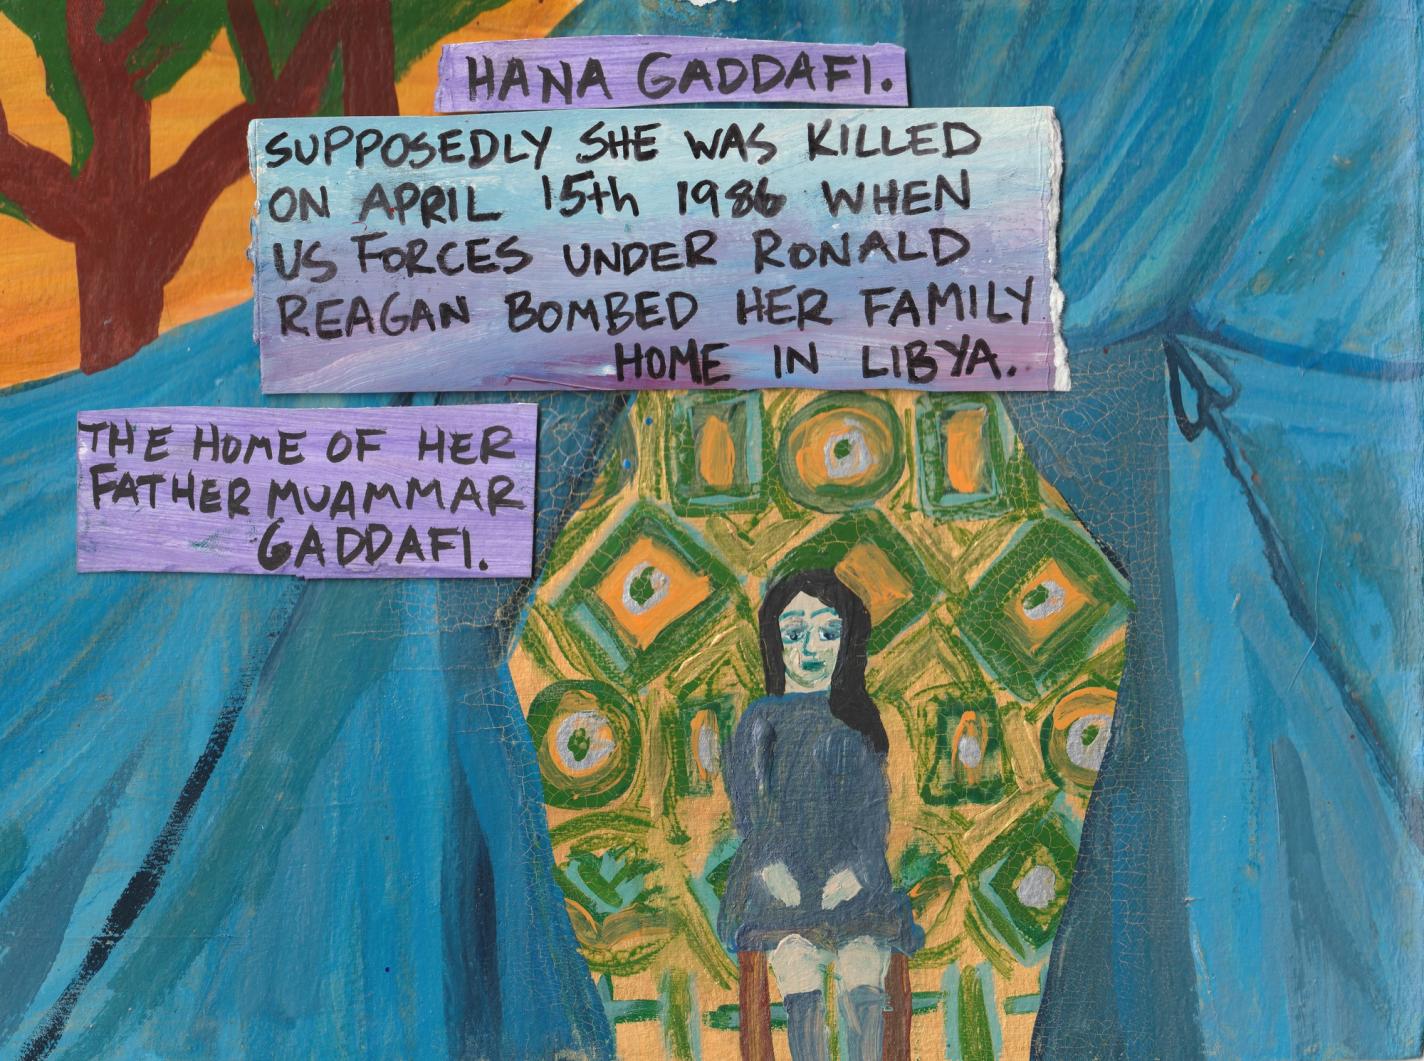 HANA GADDAFI.
SUPPOSEDLY SHE WAS KILLED
ON APRIL 15th 1986 WHEN
US FORCES UNDER RONALD
REAGAN BOMBED HER FAMILY
HOME IN LIBYA.
THE HOME OF HER
FATHER MUAMMAR
GADDAFI.